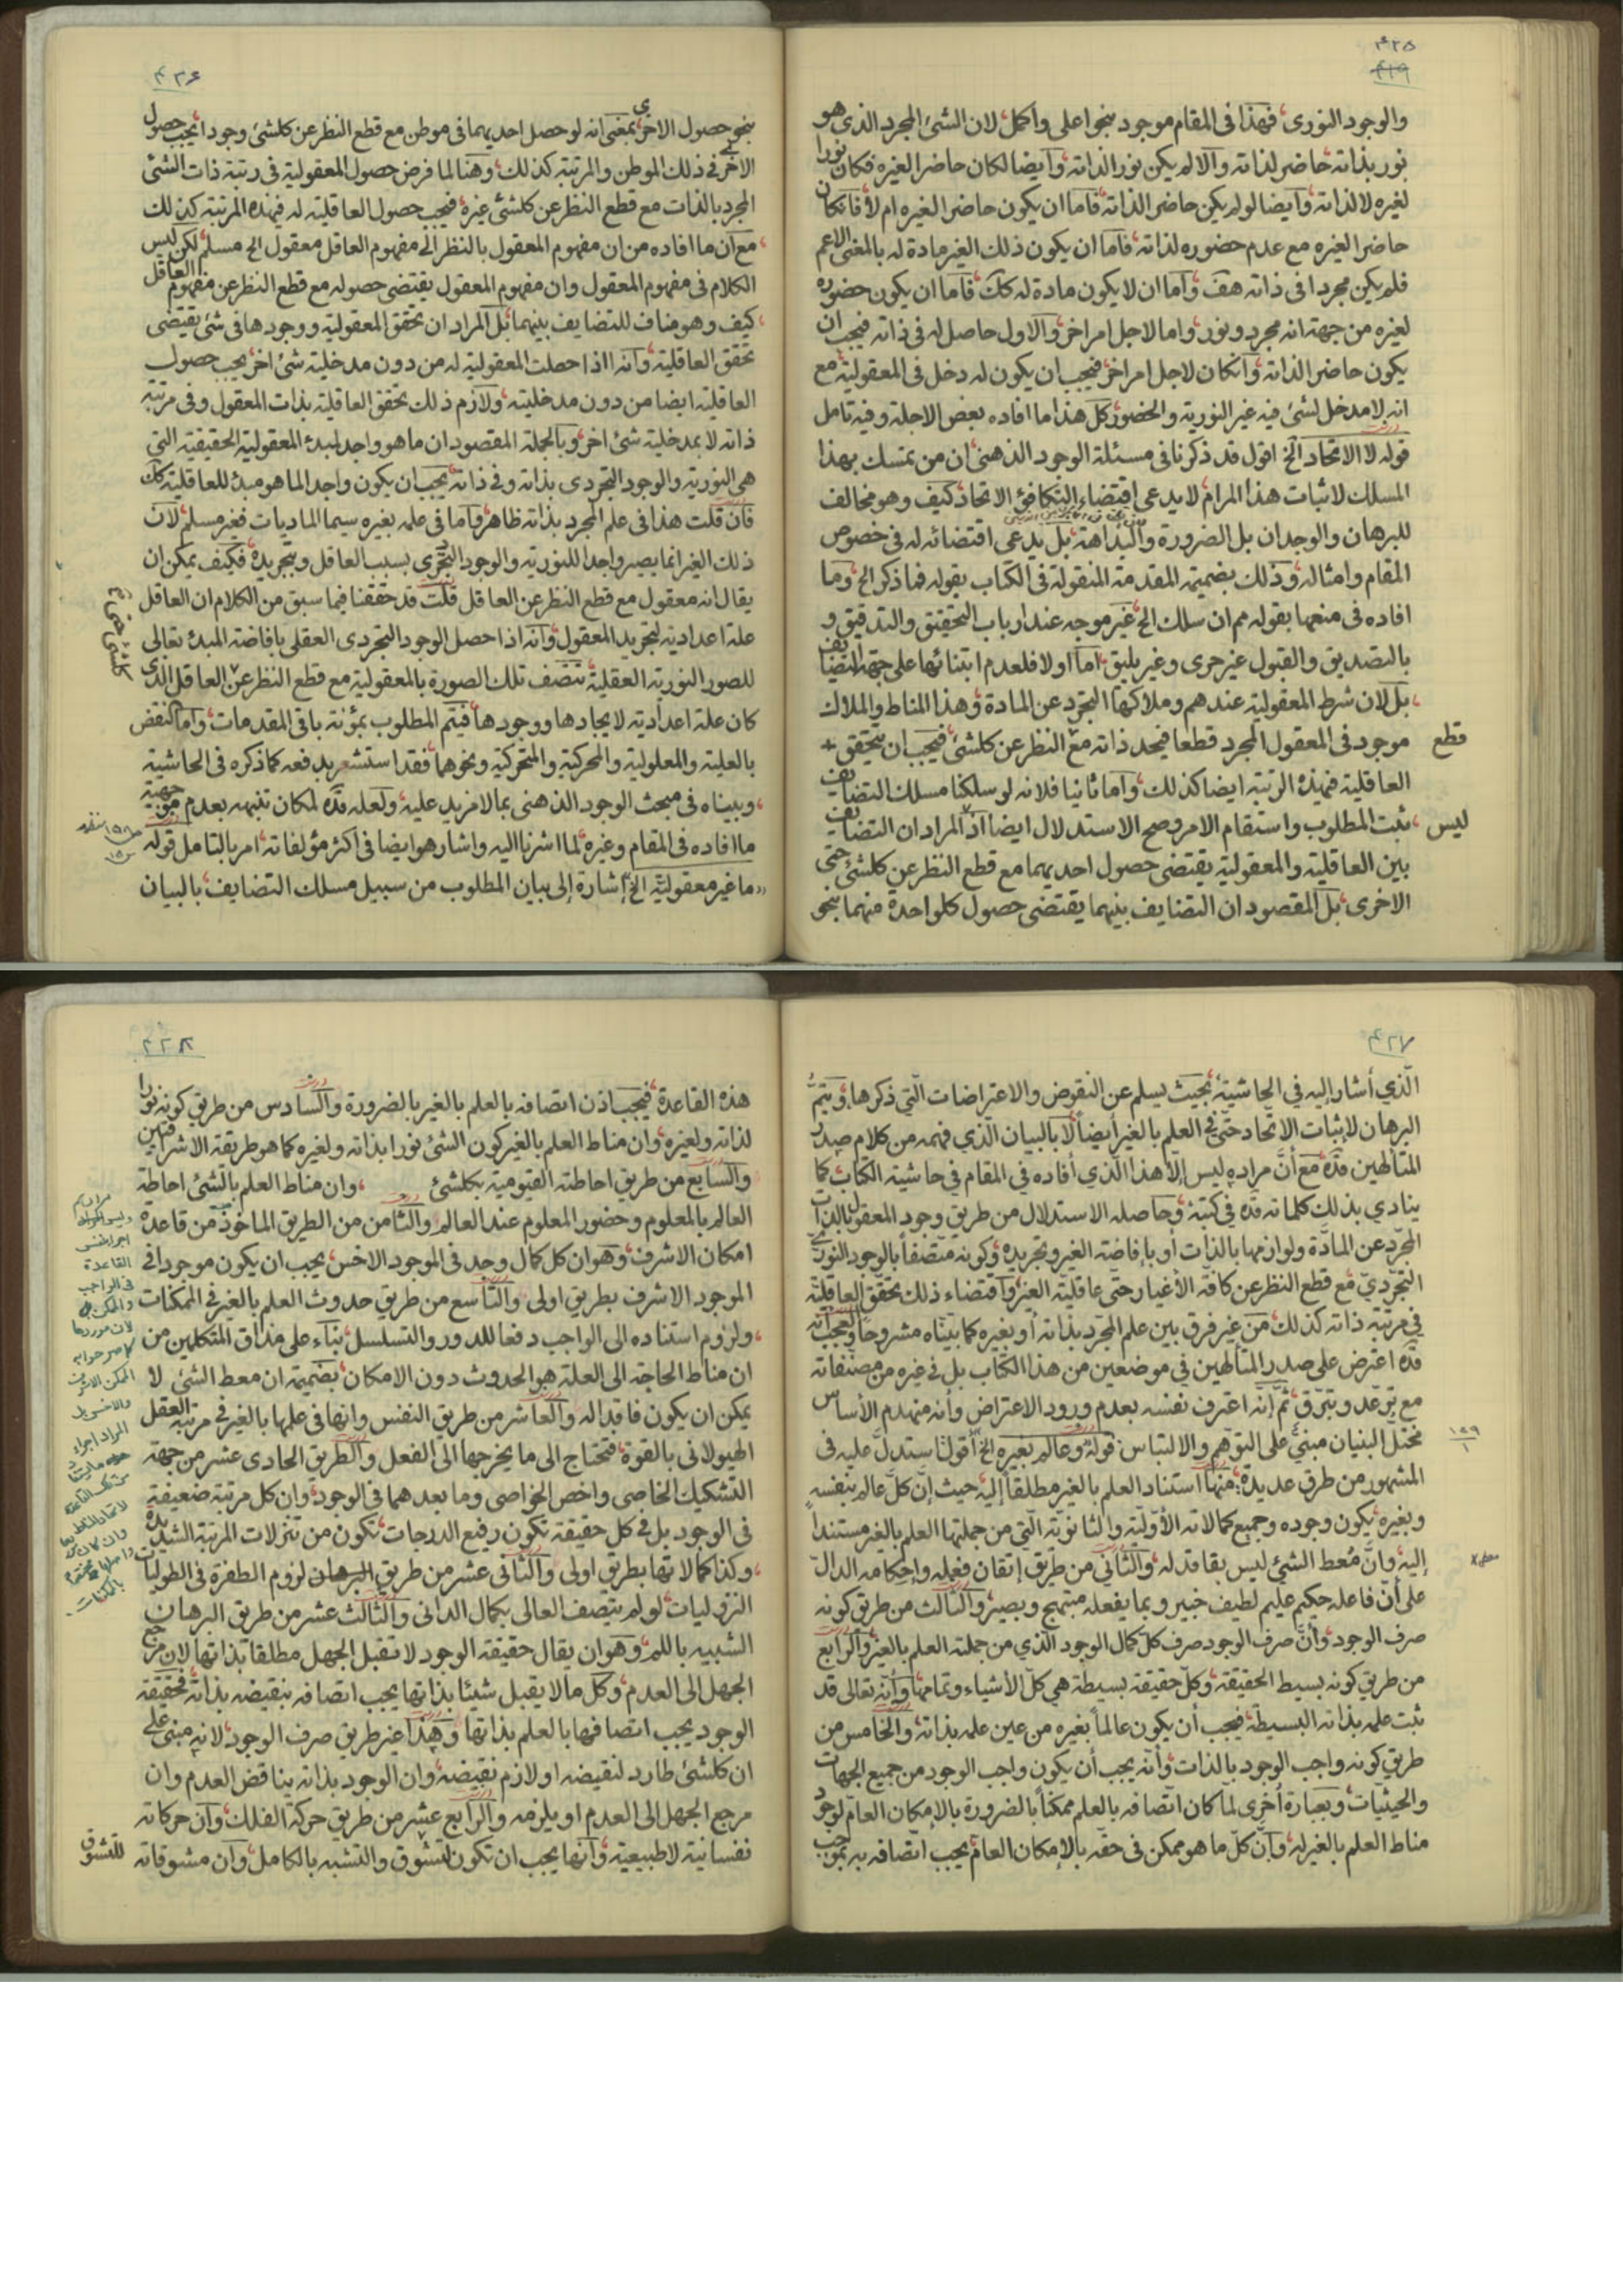 ۴۲۵
۴۱۹
والوجود النوری، فهذا فی المقام موجود بنحو اعلی واکمل، لان الشئ المجرد الذی هو
نور بذاته، حاضر لذاته والا لم یکن نور الذاته، وایضا لکان حاضرا لغیره فکان نورا
لغیره لا لذاته، وایضا لو لم یکن حاضر الذاته، فاما ان یکون حاضرا لغیره ام لا، فانکان
حاضرا لغیره مع عدم حضوره لذاته، فاما ان یکون ذلک الغیر مادة له بالمعنی الاعم
فلم یکن مجردا فی ذاته هف، واما ان لا یکون مادة له کک، فاما ان یکون حضوره
لغیره من جهة انه مجرد ونور، واما لاجل امر اخر، والاول حاصل له فی ذاته فیجب ان
یکون حاضر الذاته، وانکان لاجل امر اخر، فیجب ان یکون له دخل فی المعقولیة، مع
انه لا مدخل لشئ فیه غیر النوریة والحضور، کل هذا ما افاده بعض الاجلة وفیه تامل
قوله لا الاتحاد الخ اقول قد ذکرنا فی مسئلة الوجود الذهنی، ان من تمسک بهذا
المسلک لاثبات هذا المرام، لا یدعی اقتضاء التکافؤ الاتحاد، کیف وهو مخالف
للبرهان والوجدان بل الضرورة والبداهة، بل یدعی اقتضائه له فی خصوص
المقام وامثاله، وذلک بضمیمة المقدمة المنقولة فی الکتاب بقوله فما ذکر الخ، وما
افاده فی منعها بقوله مم ان سلک الخ، غیر موجه عند ارباب التحقیق والتدقیق و
بالتصدیق والقبول غیر حری وغیر یلیق، اما اولا فلعدم ابتنائها علی جهة التضایف
بل لان شرط المعقولیة عندهم وملاکها التجرد عن المادة، وهذا المناط والملاک
موجود فی المعقول المجرد قطعا فیجد ذاته مع النظر عن کلشئ، فیجب ان یتحقق + قطع
العاقلیة فی هذه الرتبة ایضا کذلک، واما ثانیا فلانه لو سلکنا مسلک التضایف
ثبت المطلوب واستقام الامر وصح الاستدلال ایضا اذ المراد ان التضایف، لیس
بین العاقلیة والمعقولیة یقتضی حصول احدیهما مع قطع النظر عن کلشئ حتی
الاخری، بل المقصود ان التضایف بینهما یقتضی حصول کلواحدة منهما بنحو
۴۲۶
بنحو حصول الاخری، بمعنی انه لو حصل احدیهما فی موطن مع قطع النظر عن کلشئ وجودا، یجب حصول
الاخری فی ذلک الموطن والمرتبة کذلک، وهنا لما فرض حصول المعقولیة فی رتبة ذات الشئ
المجرد بالذات مع قطع النظر عن کلشئ غیره، فیجب حصول العاقلیة له فی هذه المرتبة کذلک
مع ان ما افاده من ان مفهوم المعقول بالنظر الی مفهوم العاقل معقول الخ مسلم، لکن لیس
الکلام فی مفهوم المعقول وان مفهوم المعقول یقتضی حصوله مع قطع النظر عن مفهوم العاقل
کیف وهو مناف للتضایف بینهما، بل المراد ان تحقق المعقولیة ووجودها فی شئ یقتضی
تحقق العاقلیة، وانه اذا حصلت المعقولیة له من دون مدخلیة شئ اخر، یجب حصول
العاقلیة ایضا من دون مدخلیته، ولازم ذلک تحقق العاقلیة بذات المعقول وفی مرتبة
ذاته لا بمدخلیة شئ اخر، وبالجملة المقصود ان ما هو واجد لمبدء المعقولیة الحقیقیة التی
هی النوریة والوجود التجردی بذاته وفی ذاته، یجب ان یکون واجدا لما هو مبدء للعاقلیة کک
فان قلت هذا فی علم المجرد بذاته ظاهر، واما فی علمه بغیره سیما المادیات فغیر مسلم، لان
ذلک الغیر انما یصیر واجدا للنوریة والوجود التجردی بسبب العاقل وتجریده، فکیف یمکن ان
یقال انه معقول مع قطع النظر عن العاقل قلت قد حققنا فیما سبق من الکلام ان العاقل
علة اعدادیة لتجرید المعقول، وانه اذا حصل الوجود التجردی العقلی بافاضة المبدء تعالی
للصور النوریة العقلیة، تتصف تلک الصورة بالمعقولیة مع قطع النظر عن العاقل الذی
کان علة اعدادیة لایجادها ووجودها، فیتم المطلوب بمؤنة باقی المقدمات، واما النقض
بالعلیة والمعلولیة والمحرکیة والمتحرکیة ونحوهما، فقد استشعر بدفعه کما ذکره فی الحاشیة
وبیناه فی مبحث الوجود الذهنی بما لا مزید علیه، ولعله قده لمکان تنبهه بعدم موجهیة
ما افاده فی المقام وغیره، لما اشرنا الیه واشار هو ایضا فی اکثر مؤلفاته، امر بالتامل قوله
«ما غیر معقولیّة الخ» إشارة إلی بیان المطلوب من سبیل مسلک التضایف، بالبیان
۴۲۷
الّذي أشار إلیه في الحاشیة، بحیث یسلم عن النقوض والاعتراضات الّتي ذکرها، ویتمّ
البرهان لإثبات الاتّحاد حتّی في العلم بالغیر أیضاً، لا بالبیان الّذي فهمه من کلام صدر
المتألّهین قدّه، مع أنّ مراده لیس إلّا هذا الّذي أفاده في المقام في حاشیة الکتاب، کما
ینادي بذلک کلماته قدّه في کتبه، وحاصله الاستدلال من طریق وجود المعقول بالذات
المجرّد عن المادّة ولوازمها بالذات أو بإفاضة الغیر وتجریده، وکونه متّصفاً بالوجود النوريّ
التجرّديّ مع قطع النظر عن کافّة الأغیار حتّی عاقلیّة الغیر، واقتضاء ذلک تحقّق العاقلیّة
في مرتبة ذاته کذلک، من غیر فرق بین علم المجرّد بذاته أو بغیره کما بیّنّاه مشروحاً، والعجب أنّه
قدّه اعترض علی صدر المتألّهین في موضعین من هذا الکتاب بل في غیره من مصنّفاته
ثمّ إنّه اعترف نفسه بعدم ورود الاعتراض وأنه منهدم الأساس
مختلّ البنیان مبنيّ علی التوهّم والالتباس، قوله وعالم بغیره الخ أقول استدلّ علیه فی
المشهور من طرق عدیدة، منها استناد العلم بالغیر مطلقاً إلیه، حیث إنّ کلّ عالم بنفسه
وبغیره، یکون وجوده وجمیع کمالاته الأوّلیّة والثانویّة الّتي من جملتها العلم بالغیر مستنداً
إلیه، وانّ مُعط الشيئ لیس بفاقد له، والثاني من طریق إتقان فعله وإحکامه الدالّ
علی أنّ فاعله حکیم علیم لطیف خبیر وبما یفعله مبتهج وبصیر، والثالث من طریق کونه
صرف الوجود، وأنّ صرف الوجود صرف کلّ کمال الوجود الّذي من جملته العلم بالغیر، والرابع
من طریق کونه بسیط الحقیقة، وکلّ حقیقة بسیطة هي کلّ الأشیاء وتمامها، وأنّه تعالی قد
ثبت علمه بذاته البسیطة، فیجب أن یکون عالماً بغیره من عین علمه بذاته، والخامس من
طریق کونه واجب الوجود بالذات، وأنّه یجب أن یکون واجب الوجود من جمیع الجهات
والحیثیات، وبعبارة أخری لمّا کان اتّصافه بالعلم ممکناً بالضرورة بالإمکان العامّ لوجود
مناط العلم بالغیر له، وإنّ کلّ ما هو ممکن فی حقّه بالإمکان العامّ یجب اتّصافه به بموجب
۱۵۹
۱
۴۲۸
هذه القاعدة، فیجب اذن اتصافه بالعلم بالغیر بالضرورة، والسادس من طریق کونه نورا
لذاته ولغیره، وان مناط العلم بالغیر کون الشئ نورا بذاته ولغیره کما هو طریقة الاشراقیین
والسابع من طریق احاطته القیومیة بکلشئ، وان مناط العلم بالشئ احاطة
العالم بالمعلوم وحضور المعلوم عند العالم، والثامن من الطریق الماخوذ من قاعدة
امکان الاشرف، وهو ان کل کمال وجد فی الموجود الاخس، یجب ان یکون موجودا فی
الموجود الاشرف بطریق اولی، والتاسع من طریق حدوث العلم بالغیر فی الممکنات
ولزوم استناده الی الواجب دفعا للدور والتسلسل، بناء علی مذاق المتکلمین من
ان مناط الحاجة الی العلة هو الحدوث دون الامکان، بضمیمة ان معط الشئ لا
یمکن ان یکون فاقدا له، والعاشر من طریق النفس وانها فی علمها بالغیر فی مرتبة العقل
الهیولانی بالقوة، فتحتاج الی ما یخرجها الی الفعل، والطریق الحادی عشر من جهة
التشکیک الخاصی واخص الخواصی وما بعدهما فی الوجود، وان کل مرتبة ضعیفة
فی الوجود بل فی کل حقیقة تکون رفیع الدرجات، تکون من تنزلات المرتبة الشدیدة
وکذا کمالاتها بطریق اولی، والثانی عشر من طریق البرهان لزوم الطفرة فی الطولیات
النزولیات، لو لم یتصف العالی بکمال الدانی، والثالث عشر من طریق البرهان
الشبیه باللم، وهو ان یقال حقیقة الوجود لا تقبل الجهل مطلقا بذاتها، لان مرجع
الجهل الی العدم، وکل ما لا یقبل شیئا بذاتها یجب اتصافه بنقیضه بذاته، فحقیقة
الوجود یجب اتصافها بالعلم بذاتها، وهذا غیر طریق صرف الوجود، لانه مبنی علی
ان کلشئ طارد لنقیضه او لازم نقیضه، وان الوجود بذاته یناقض العدم وان
مرجع الجهل الی العدم او یلزمه، والرابع عشر من طریق حرکة الفلک، وان حرکاته
نفسانیة لا طبیعیة، وانها یجب ان تکون لتشوق والتشبه بالکامل، وان مشوقاته للتشوق